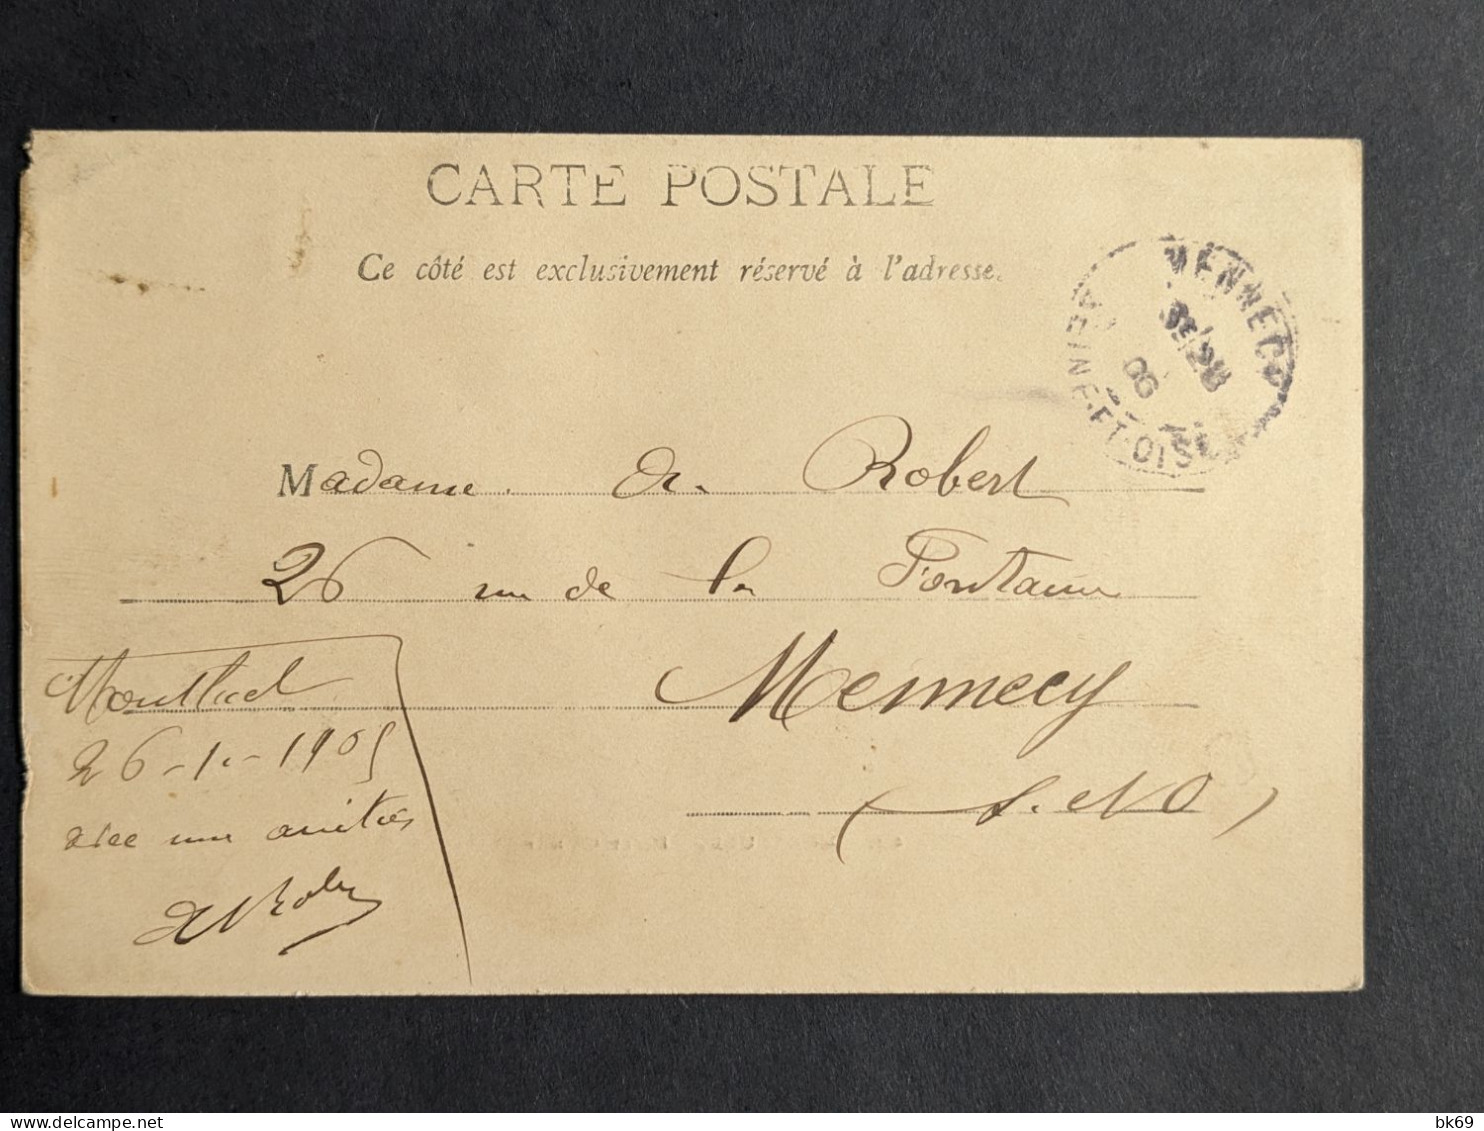 CARTE POSTALE
Ce côté est exclusivement réservé à l'adresse.
MENNECY
SEINE-ET-OISE
Madame de Robert
26 rue de la Fontaine
Mennecy
(S. et O)
26-1-1905
avec mes amitiés
bk69